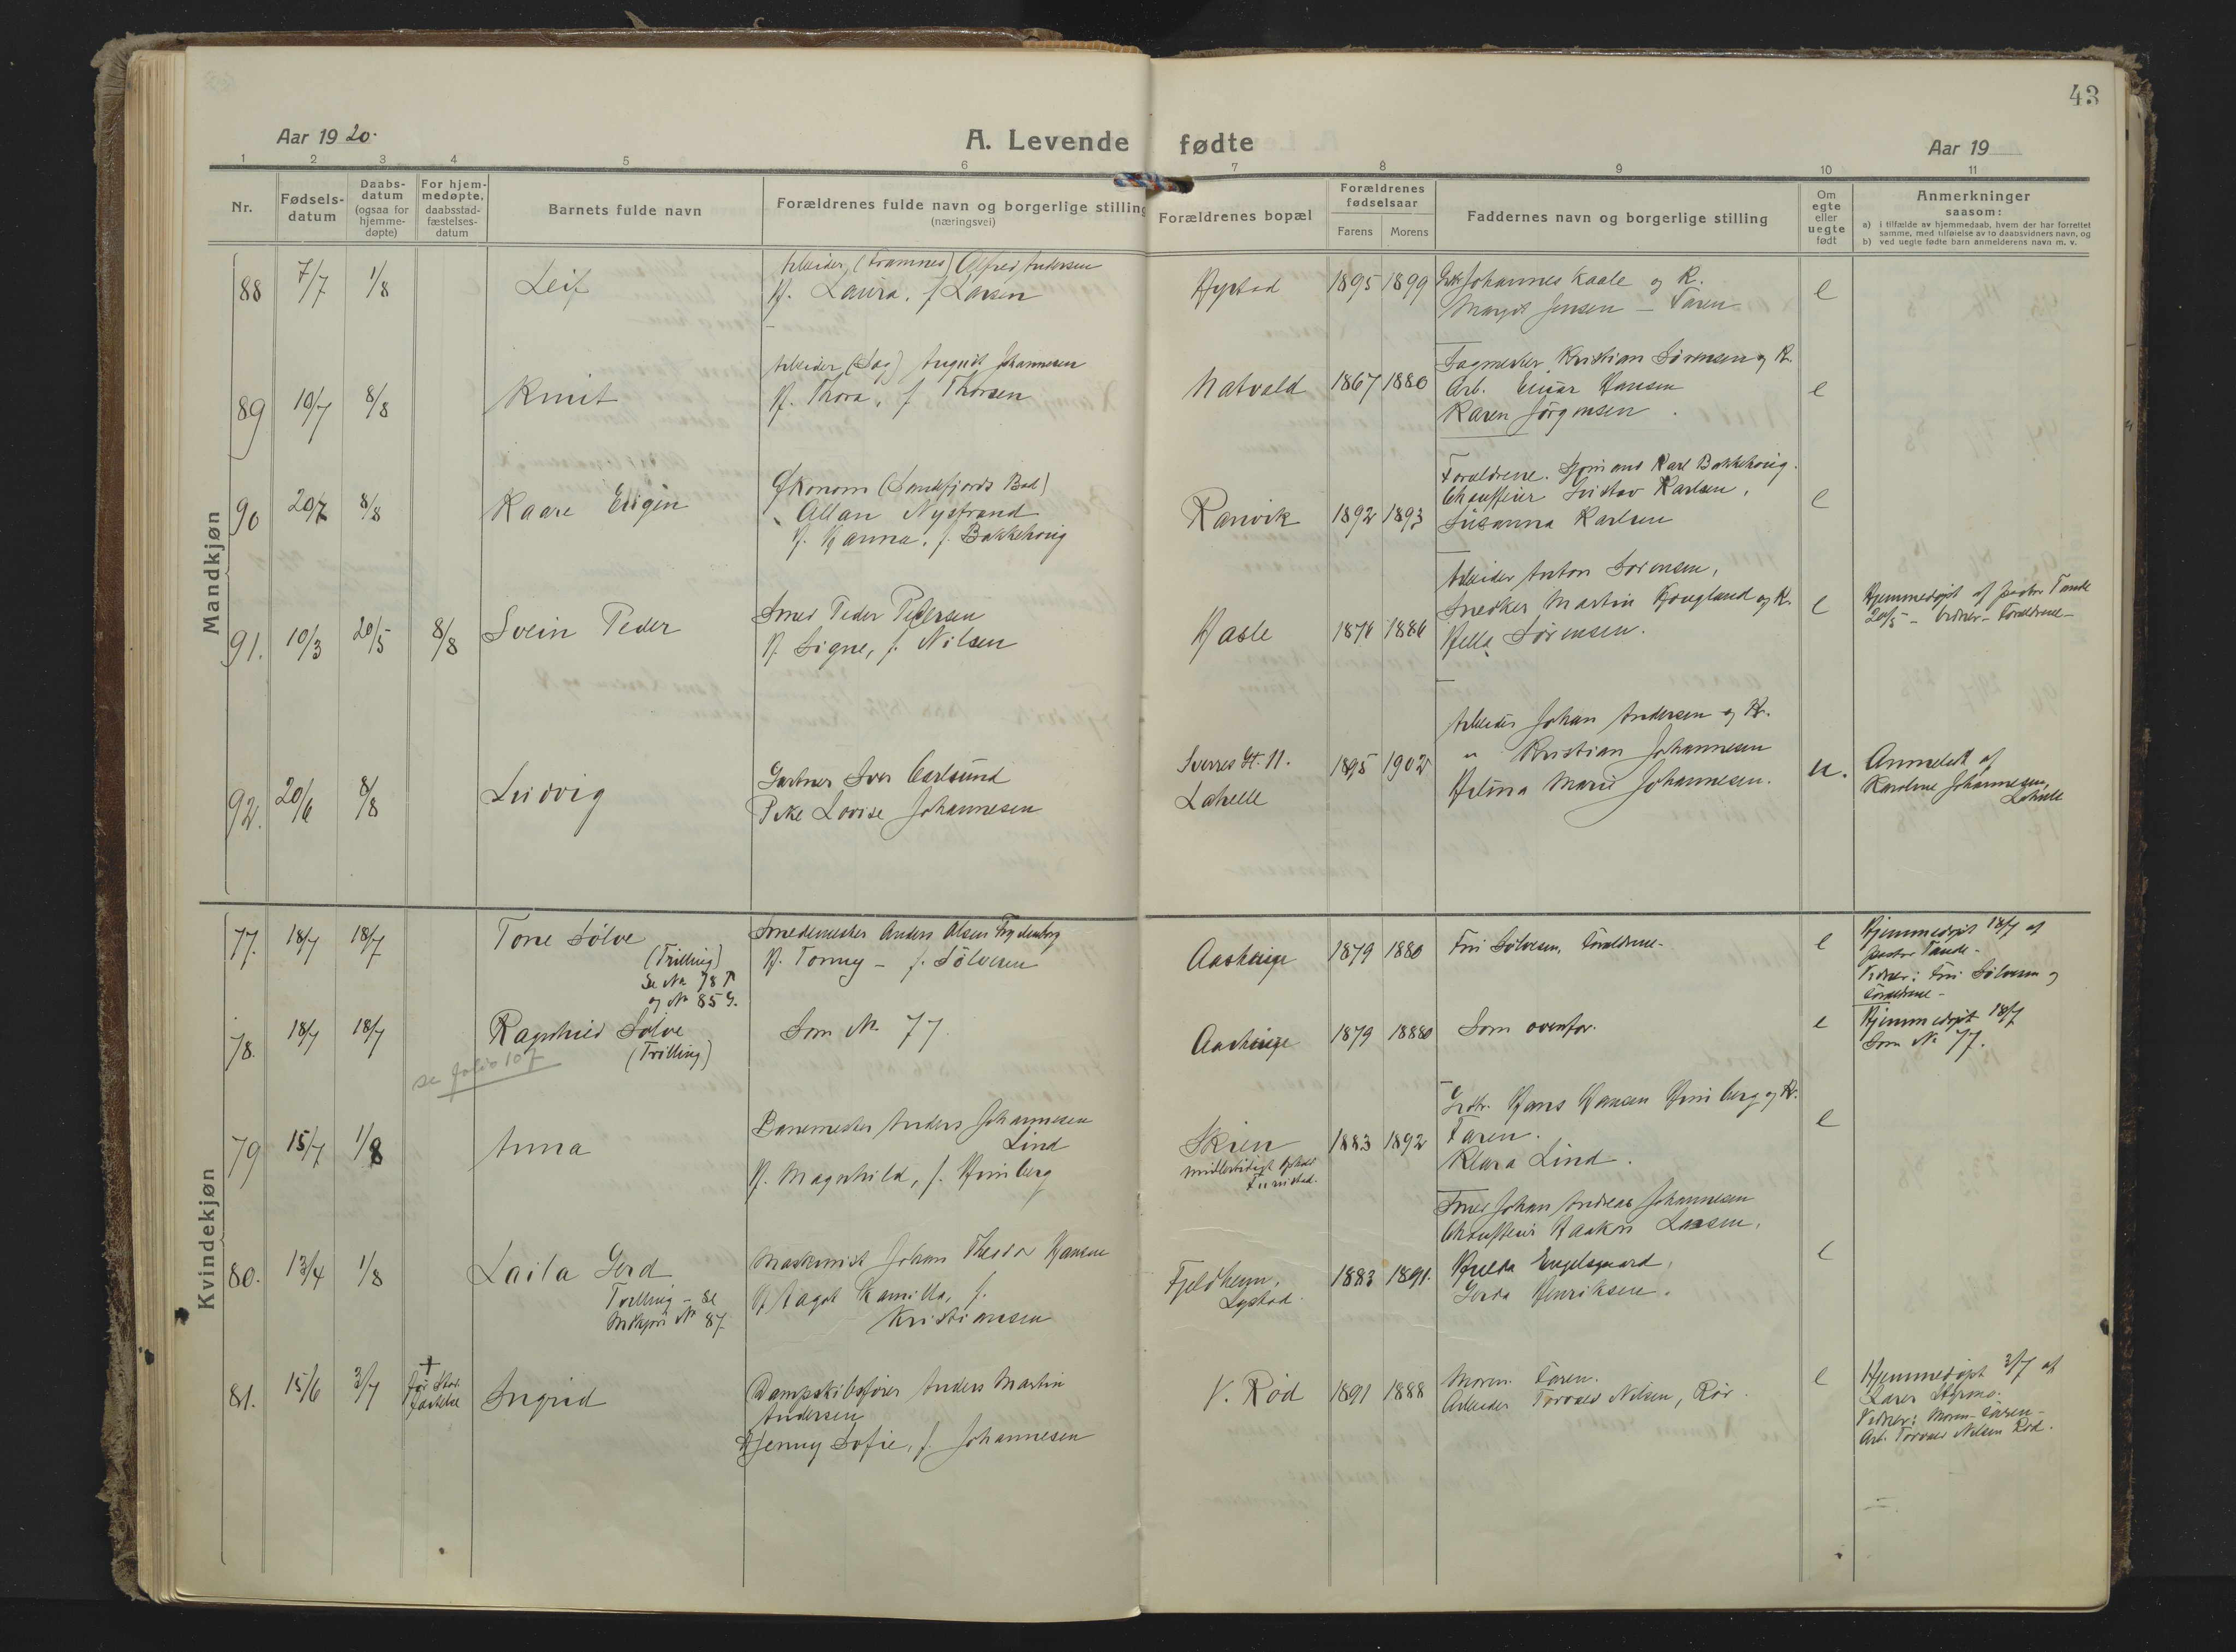 43
Aar 1920.
A. Levende fødte
Aar 19
1 2 3 4 5 6 7 8 9 10 11
Nr.
Fødsels-
datum
Daabs-
datum
(ogsaa for
hjemme-
døpte)
For hjem-
medøpte,
daabsstad-
fæstelses-
datum
Barnets fulde navn
Forældrenes fulde navn og borgerlige stilling
(næringsvei)
Forældrenes bopæl
Forældrenes
fødselsaar
Farens Morens
Faddernes navn og borgerlige stilling
Om
egte
eller
uegte
født
Anmerkninger
saasom:
a) i tilfælde av hjemmedaab, hvem der har forrettet
samme, med tilføielse av to daabsvidners navn, og
b) ved uegte fødte barn anmelderens navn m. v.
Mandkjøn
88 7/7 1/8 Leif
Arbeider (Framnes) Alfred Andersen
H. Laura, f. Larsen
1895 1899
Johannes Kaale og K.
Margit Jensen – Faren
e
89 10/7 8/8 Knut
Arbeider (Sag) August Johannesen
H. Thora, f. Thorsen
Natvald 1867 1880
Sagmester Kristian Sørensen og K.
Arb. Einar Hansen
Karen Jörgensen
e
90 20/7 8/8 Kaare Eugen
Økonom (Sandefjords Bad)
Allan Nystrand
H. Hanna, f. Bakkehaug
Ranvik 1892 1893
Forældrene. Sjømand Karl Bakkehaug.
Chauffeur Gustav Karlsen,
Susanna Karlsen
e
91. 10/3 20/5 8/8 Svein Peder
Smed Peder Pedersen
H. Signe, f. Nilsen
Hasle 1876 1886
Arbeider Anton Sørensen,
Snedker Martin Hougland og K.
Hella Sørensen.
e
Hjemmedøpt af pastor Tande
20/5 – Vidner – Forældrene –
92. 20/6 8/8 Ludvig
Gartner Iver Carlsund
Pike Lovise Johannesen
Sverres Gt. 11.
Lahelle
1895 1902
Arbeider Johan Andersen og K.
" Kristian Johannesen
Helina Marie Johannesen.
u.
Anmeldt af
Karoline Johannesen,
Lahelle
Kvindekjøn
77. 18/7 18/7 Tone Sølve
(Trilling)
Se No 78
og No 85 G.
Smedemester Anders Olsen Frydenborg
H. Tonny – f. Sölvesen
1879 1880
Fru Sölvesen, Forældrene –
e
Hjemmedøpt 18/7 af
pastor Tande –
Vidner: Fru Sölvesen og
Forældrene –
78. 18/7 18/7 Ragnhild Sølve
(Trilling)
se folio 107
Som No 77
1879 1880
Som ovenfor.
e
Hjemmedøpt 18/7
Som No 77.
79 15/7 1/8 Anna
Banemester Anders Johannesen
Lind
H. Magnhild, f. Himberg
Skien
midlertidigt Ophold
1883 1892
Grdbr. Hans Hansen Himberg og K.
Faren.
Klara Lind.
e
80. 13/4 1/8 Laila Gerd
Tvilling – se
Mkjön No 87.
Maskinist Johan Theodor Hansen
H. Aagot Kamilla, f.
Kristiansen
Fjeldheim,
1883 1891.
Smed Johan Andreas Johannesen
Chauffeur Haakon Larsen,
Hulda Engelsgaard,
Gerda Henriksen.
e
81. 15/6 3/7
†
før Stad
fæstelse
Ingrid
Dampskibsfører Anders Martin
Andersen
H. Jenny Sofie, f. Johannesen
V. Rød 1891 1888
Moren. Faren.
Arbeider Torvald Nilsen, Rød.
e
Hjemmedøpt 3/7 af
Vidner: Moren – Faren –
Arb. Torvald Nilsen Rød.